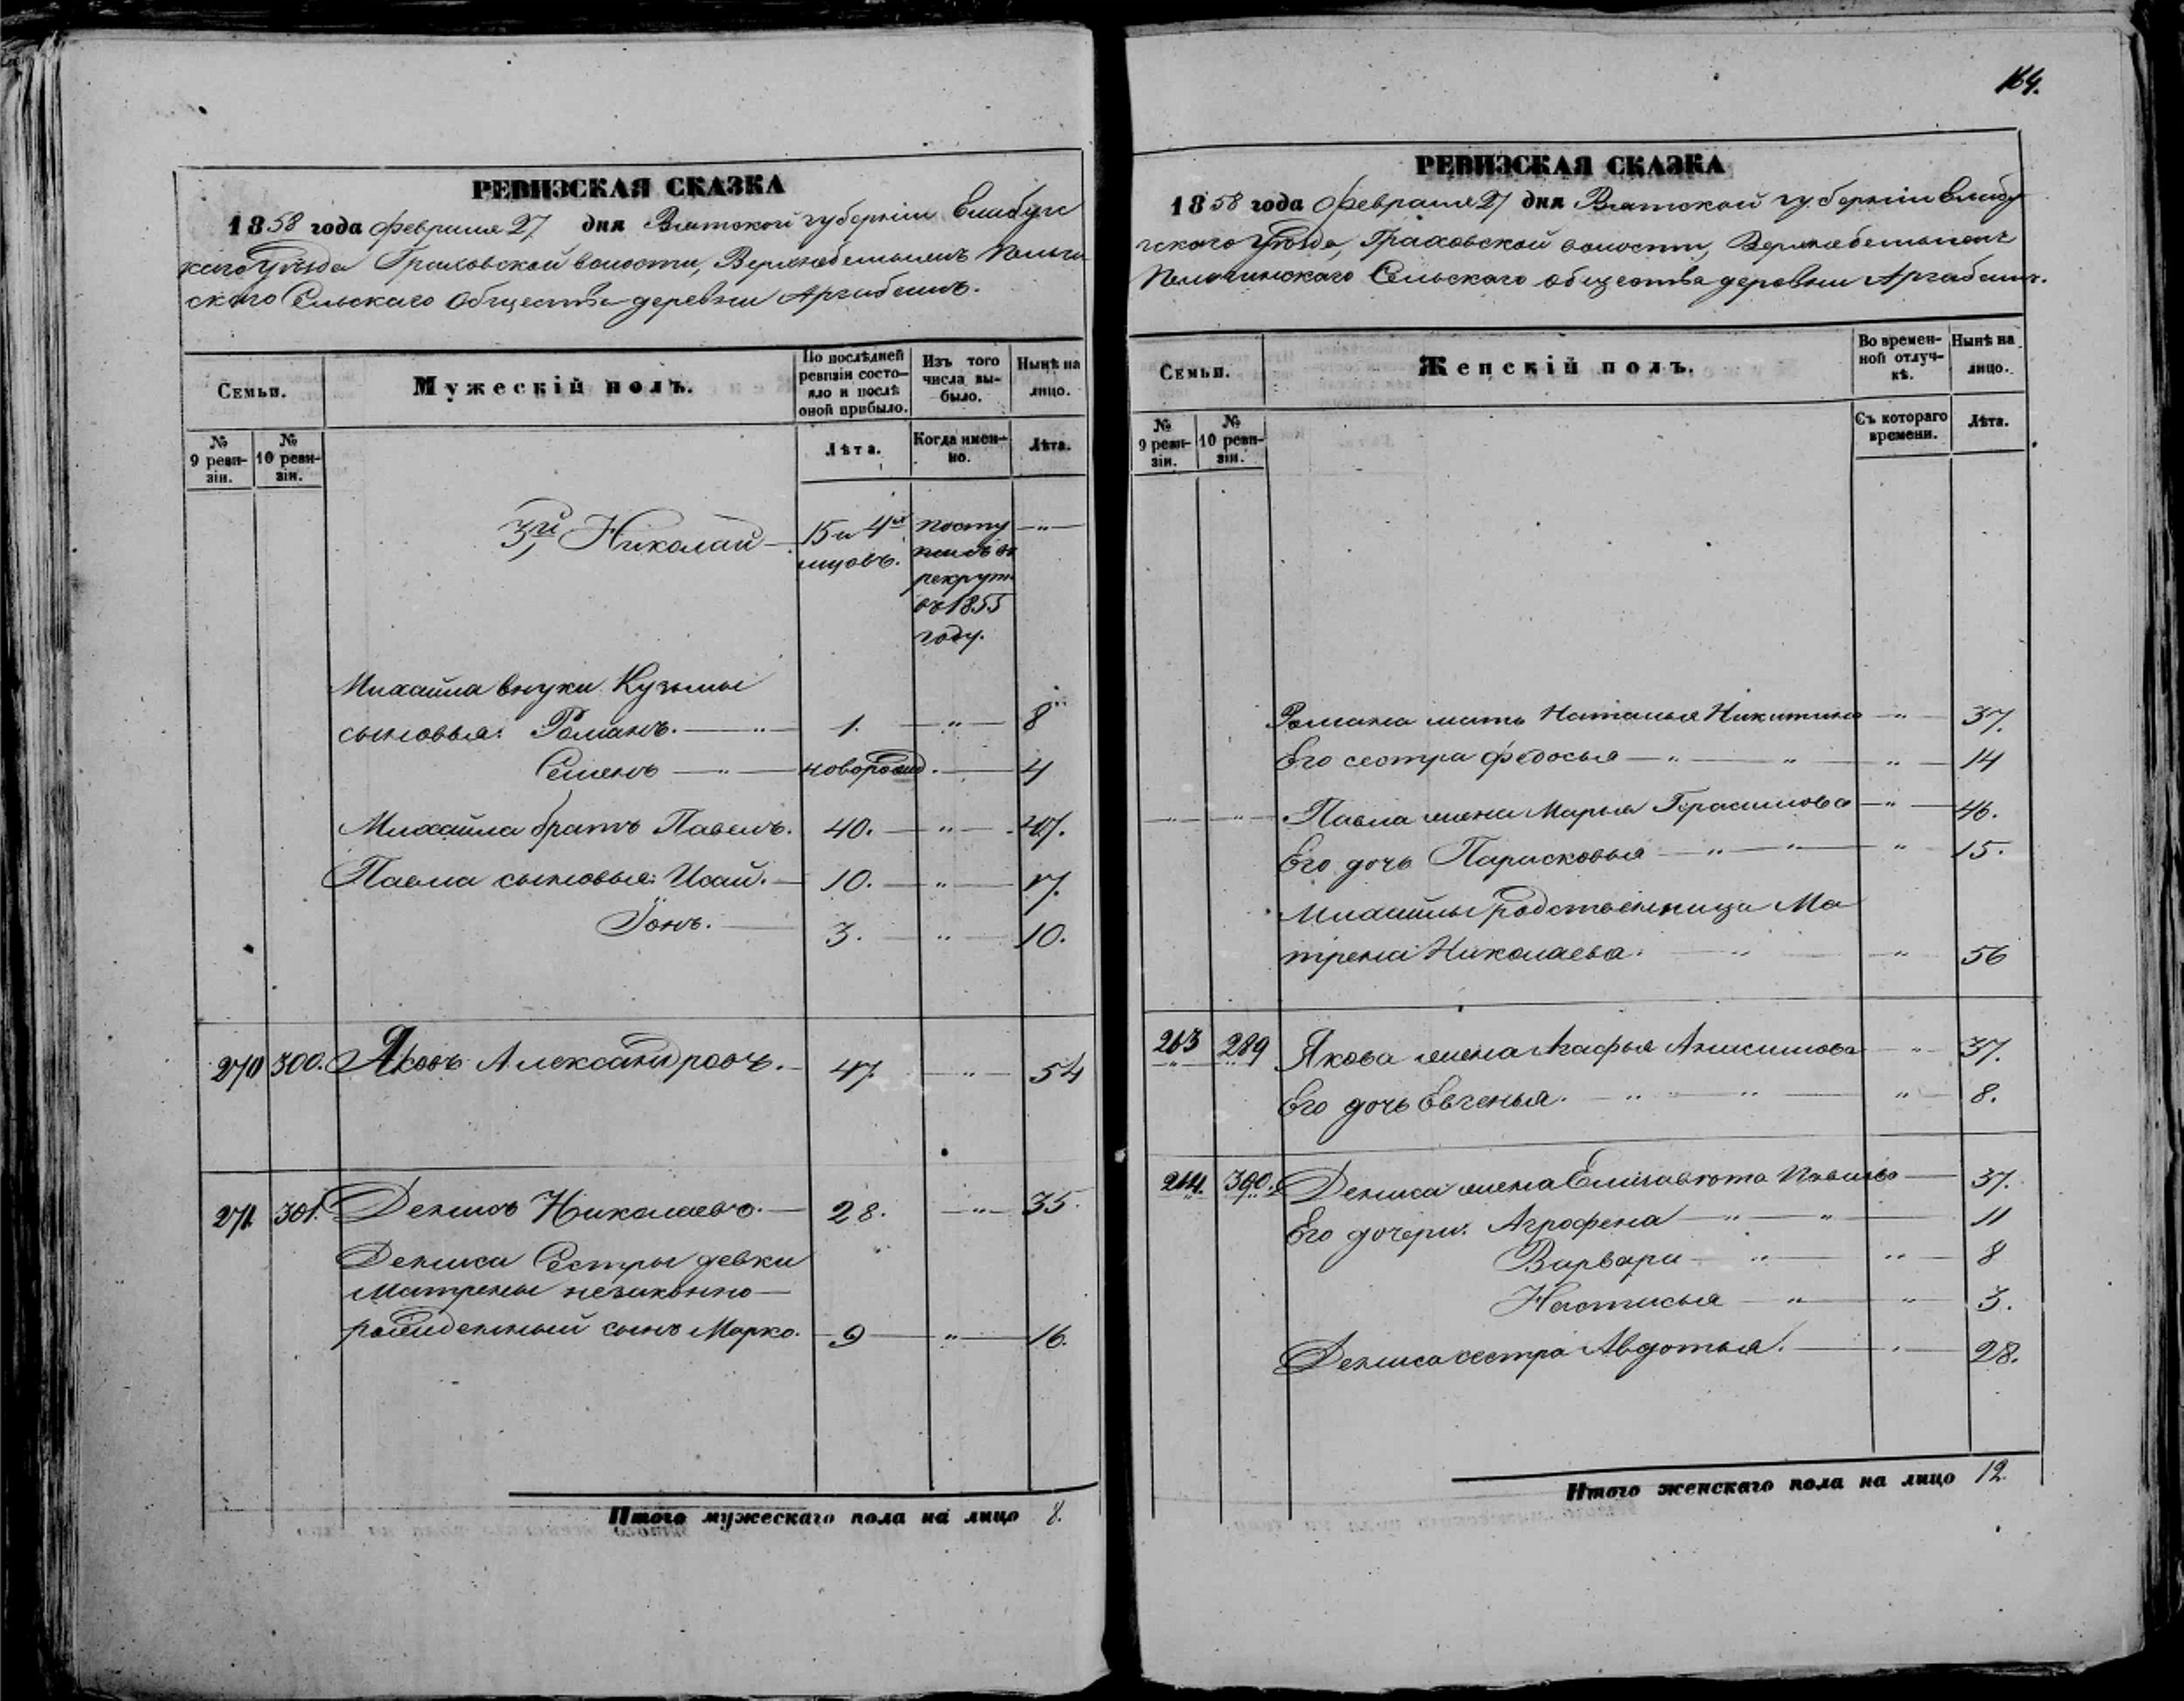 РЕВИЗСКАЯ СКАЗКА
1858 года Февраля 27 дня Вятской губерніи Елабужс
каго Уѣзда Граховской волости,
скаго Сельскаго Общества деревни Аргабашъ.
Семьи.
Мужескій полъ.
По послѣдней ревизіи состояло и послѣ оной прибыло.
Изъ того числа выбыло.
Нынѣ на лицо.
№ 9 ревизіи.
№ 10 ревизіи.
Лѣта.
Когда именно.
Лѣта.
3й Николай — 15 и 4хъ посту — " —
мцовъ. пилъ въ
рекруты
въ 1855
году.
Михайла внуки Кузьмы
сыновья: Романъ. — " — 1. — " — 8
Семенъ — " — новорожд. — 4
Михайла братъ Павелъ. 40. — " — 47.
Павла сыновья: Исай. — 10. — " — 17.
Іонъ. — 3. — " — 10.
270 300. Яковъ Александровъ. — 47 — " — 54
271. 301. Денисъ Николаевъ. — 28. — " — 35.
Дениса Сестры девки
Матрены незаконно—
рожденный сынъ Марко. — 9 — " — 16.
Итого мужескаго пола на лицо 8.
164.
РЕВИЗСКАЯ СКАЗКА
1858 года Февраля 27 дня Вятской губерніи Елабу
жскаго Уѣзда, Граховской волости,
Сельскаго общества деревни Аргабашъ.
Семьи.
Женскій полъ.
Во временной отлучкѣ.
Нынѣ на лицо.
№ 9 ревизіи.
№ 10 ревизіи.
Съ котораго времени.
Лѣта.
Романа мать Наталья Никитина — " — 37.
Его сестра Федосья — " — " — " — 14
Павла жена Марья Герасимова — " — 46.
Его дочь Парасковья — " — " — " — 15.
Михайлы родственница Ма
трена Николаева. — " — " — 56
263 289 Якова жена Агафья Анисимова — " — 37.
Его дочь Евгенья. — " — " — " — 8.
264. Дениса жена Елисавѣта — 37.
Его дочери: Агрофена — " — " — 11
Варвара — " — " — 8
Настасья — " — " — 3.
Дениса сестра Авдотья. — " — 28.
Итого женскаго пола на лицо 12.